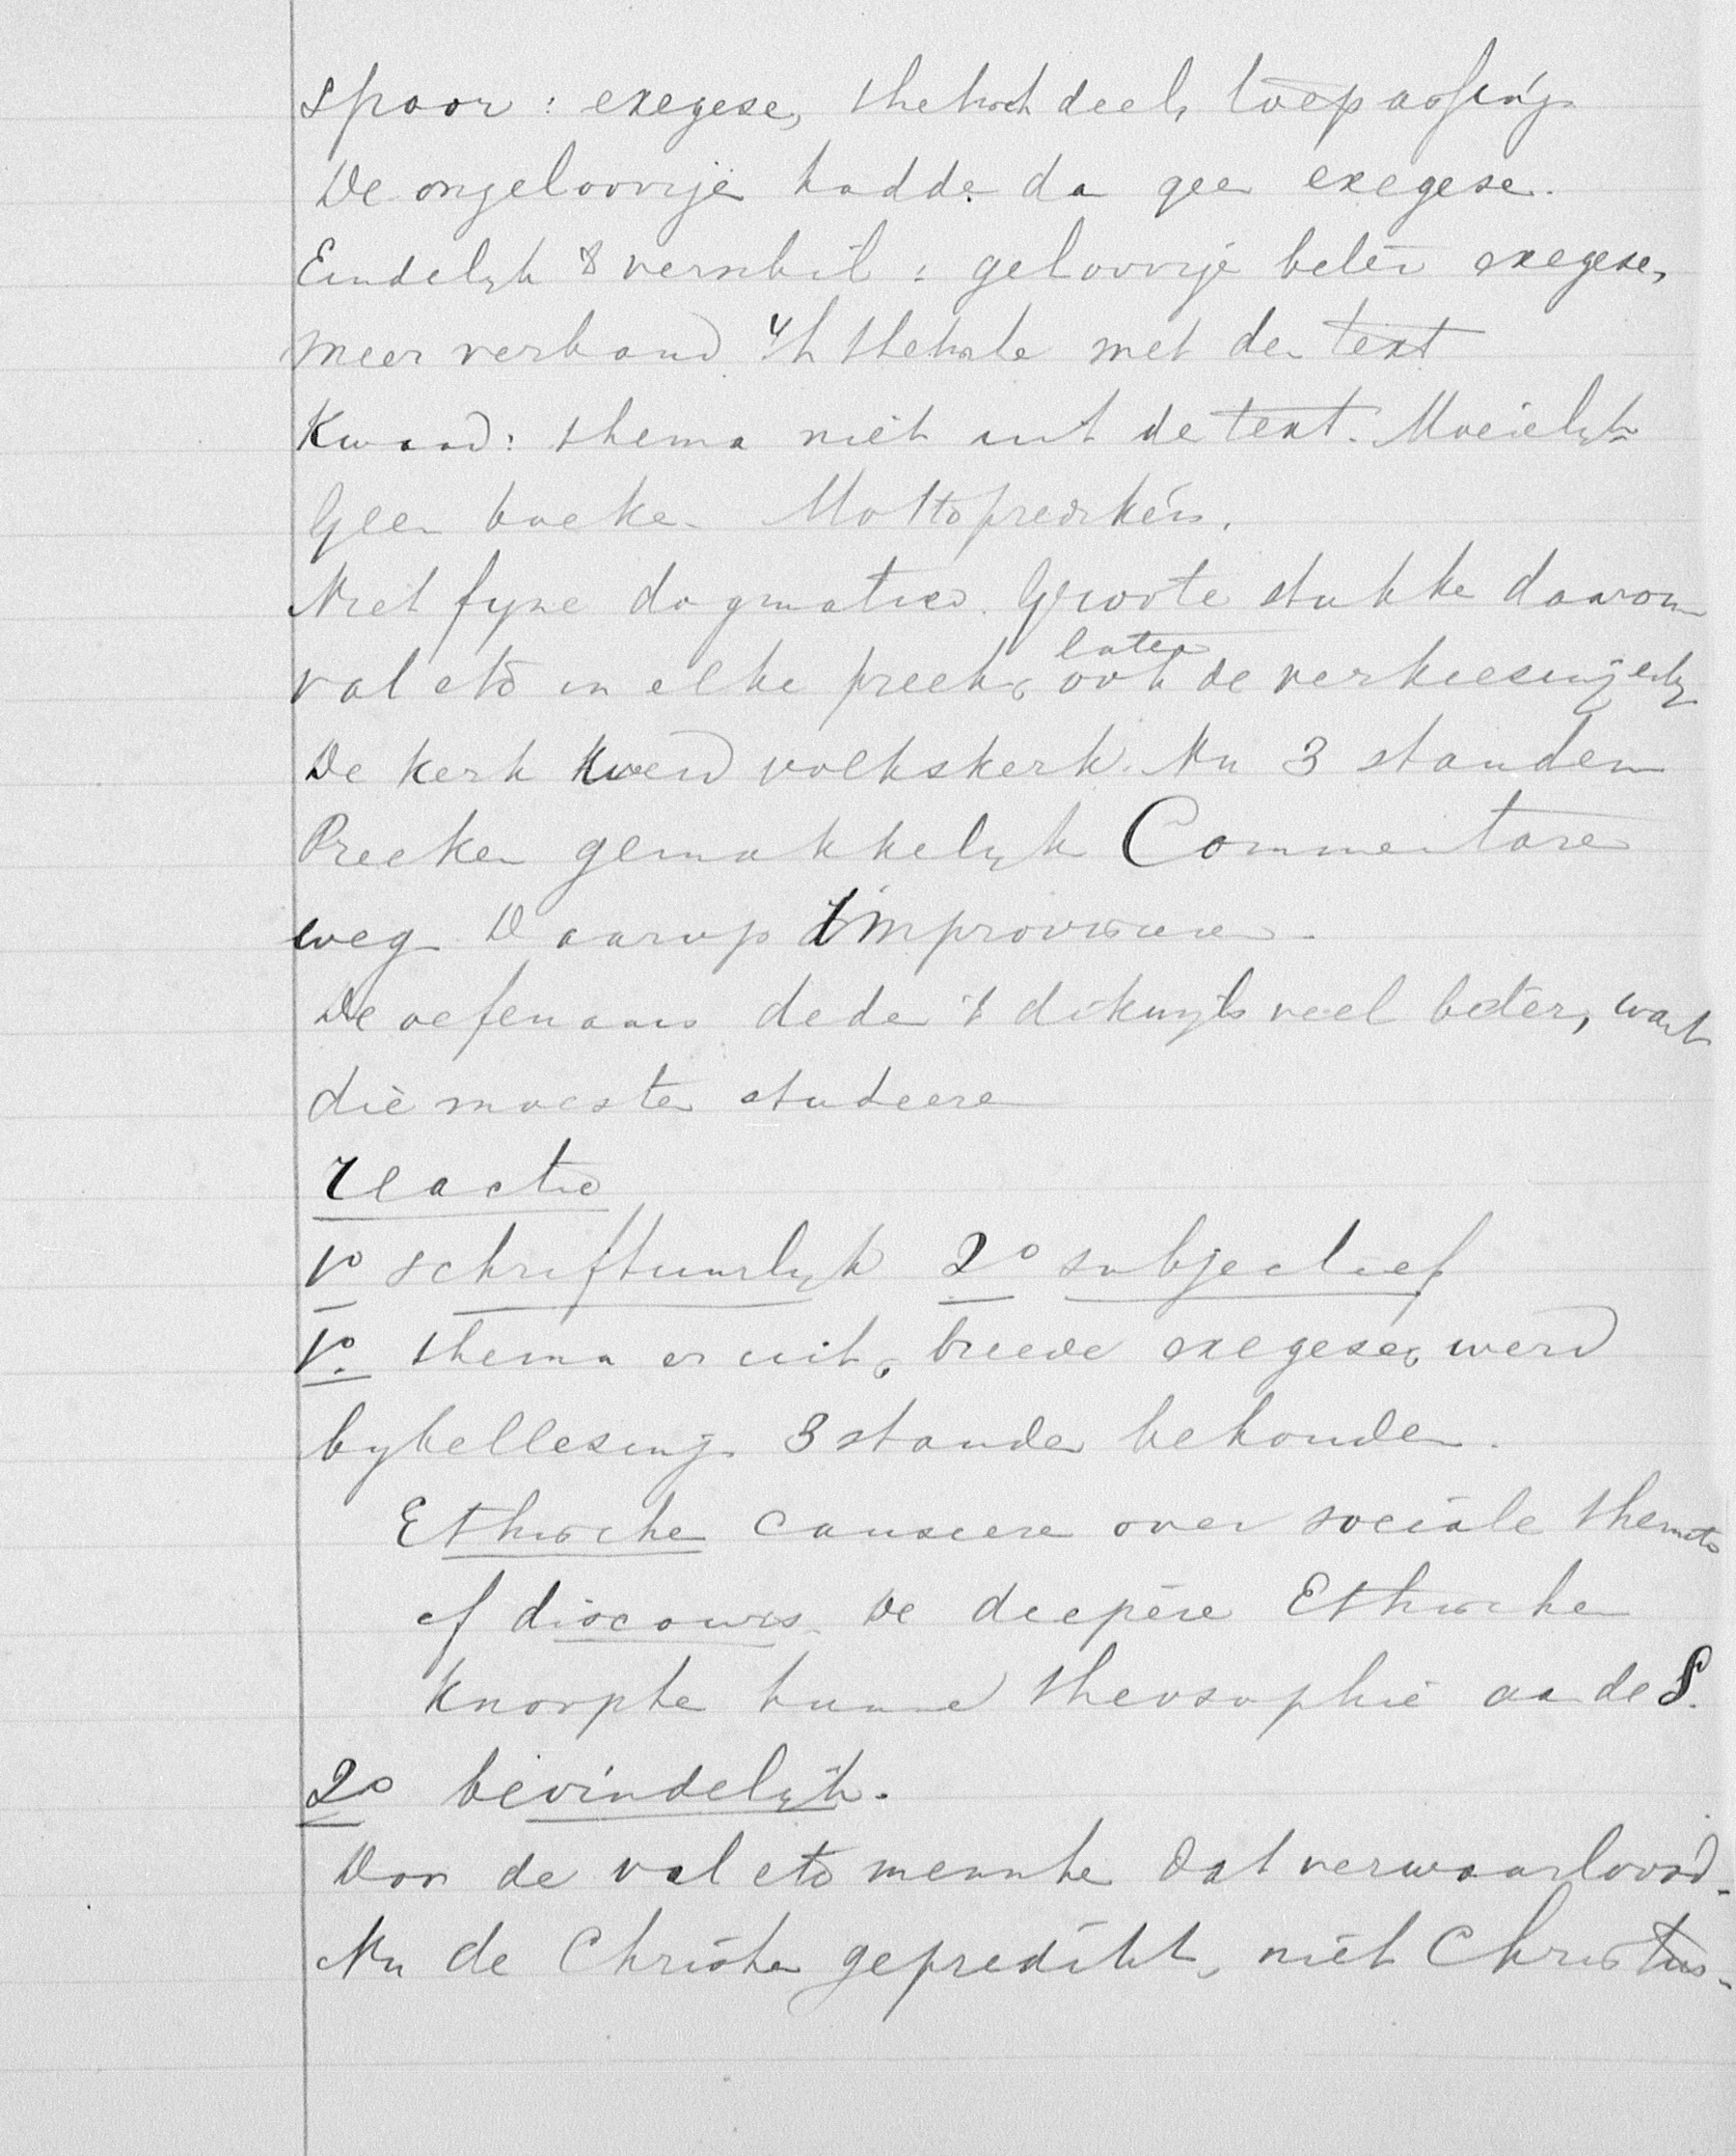 spoor: exegese, thetisch deel, toepassing
De ongeloovige hadde da gee exegese.
Eindelyk verschil: geloovige beter exegese,
meer verband 't thetische met den text
Kwaad: thema niet uit de text. Moeielyk
Geen boeke. Mottopredikën.
Niet fyne dogmatiek. Groote stukke daarom
val etc in elke preek, ook de verkiesing enz
later
De kerk werd volkskerk. Nu 3 standen
Preeken gemakkelyk Commentare
weg Daarop improvisere.
De oefenaars deden 't dikwyls veel beter, want
die moesten studeere
reactie
1º schriftuurlyk 2º subjectief
1º. thema er uit, breede exegese, werd
bybellesing 3 standen behouden.
Ethische causeere over sociale themata
of discours. De diepere Ethische
Knoopte hunne theosophie aa de S.
2º bevindelyk.
Door de val etc mensche dat verwaarloosd.
Nu de Christen gepredikt, niet Christus.